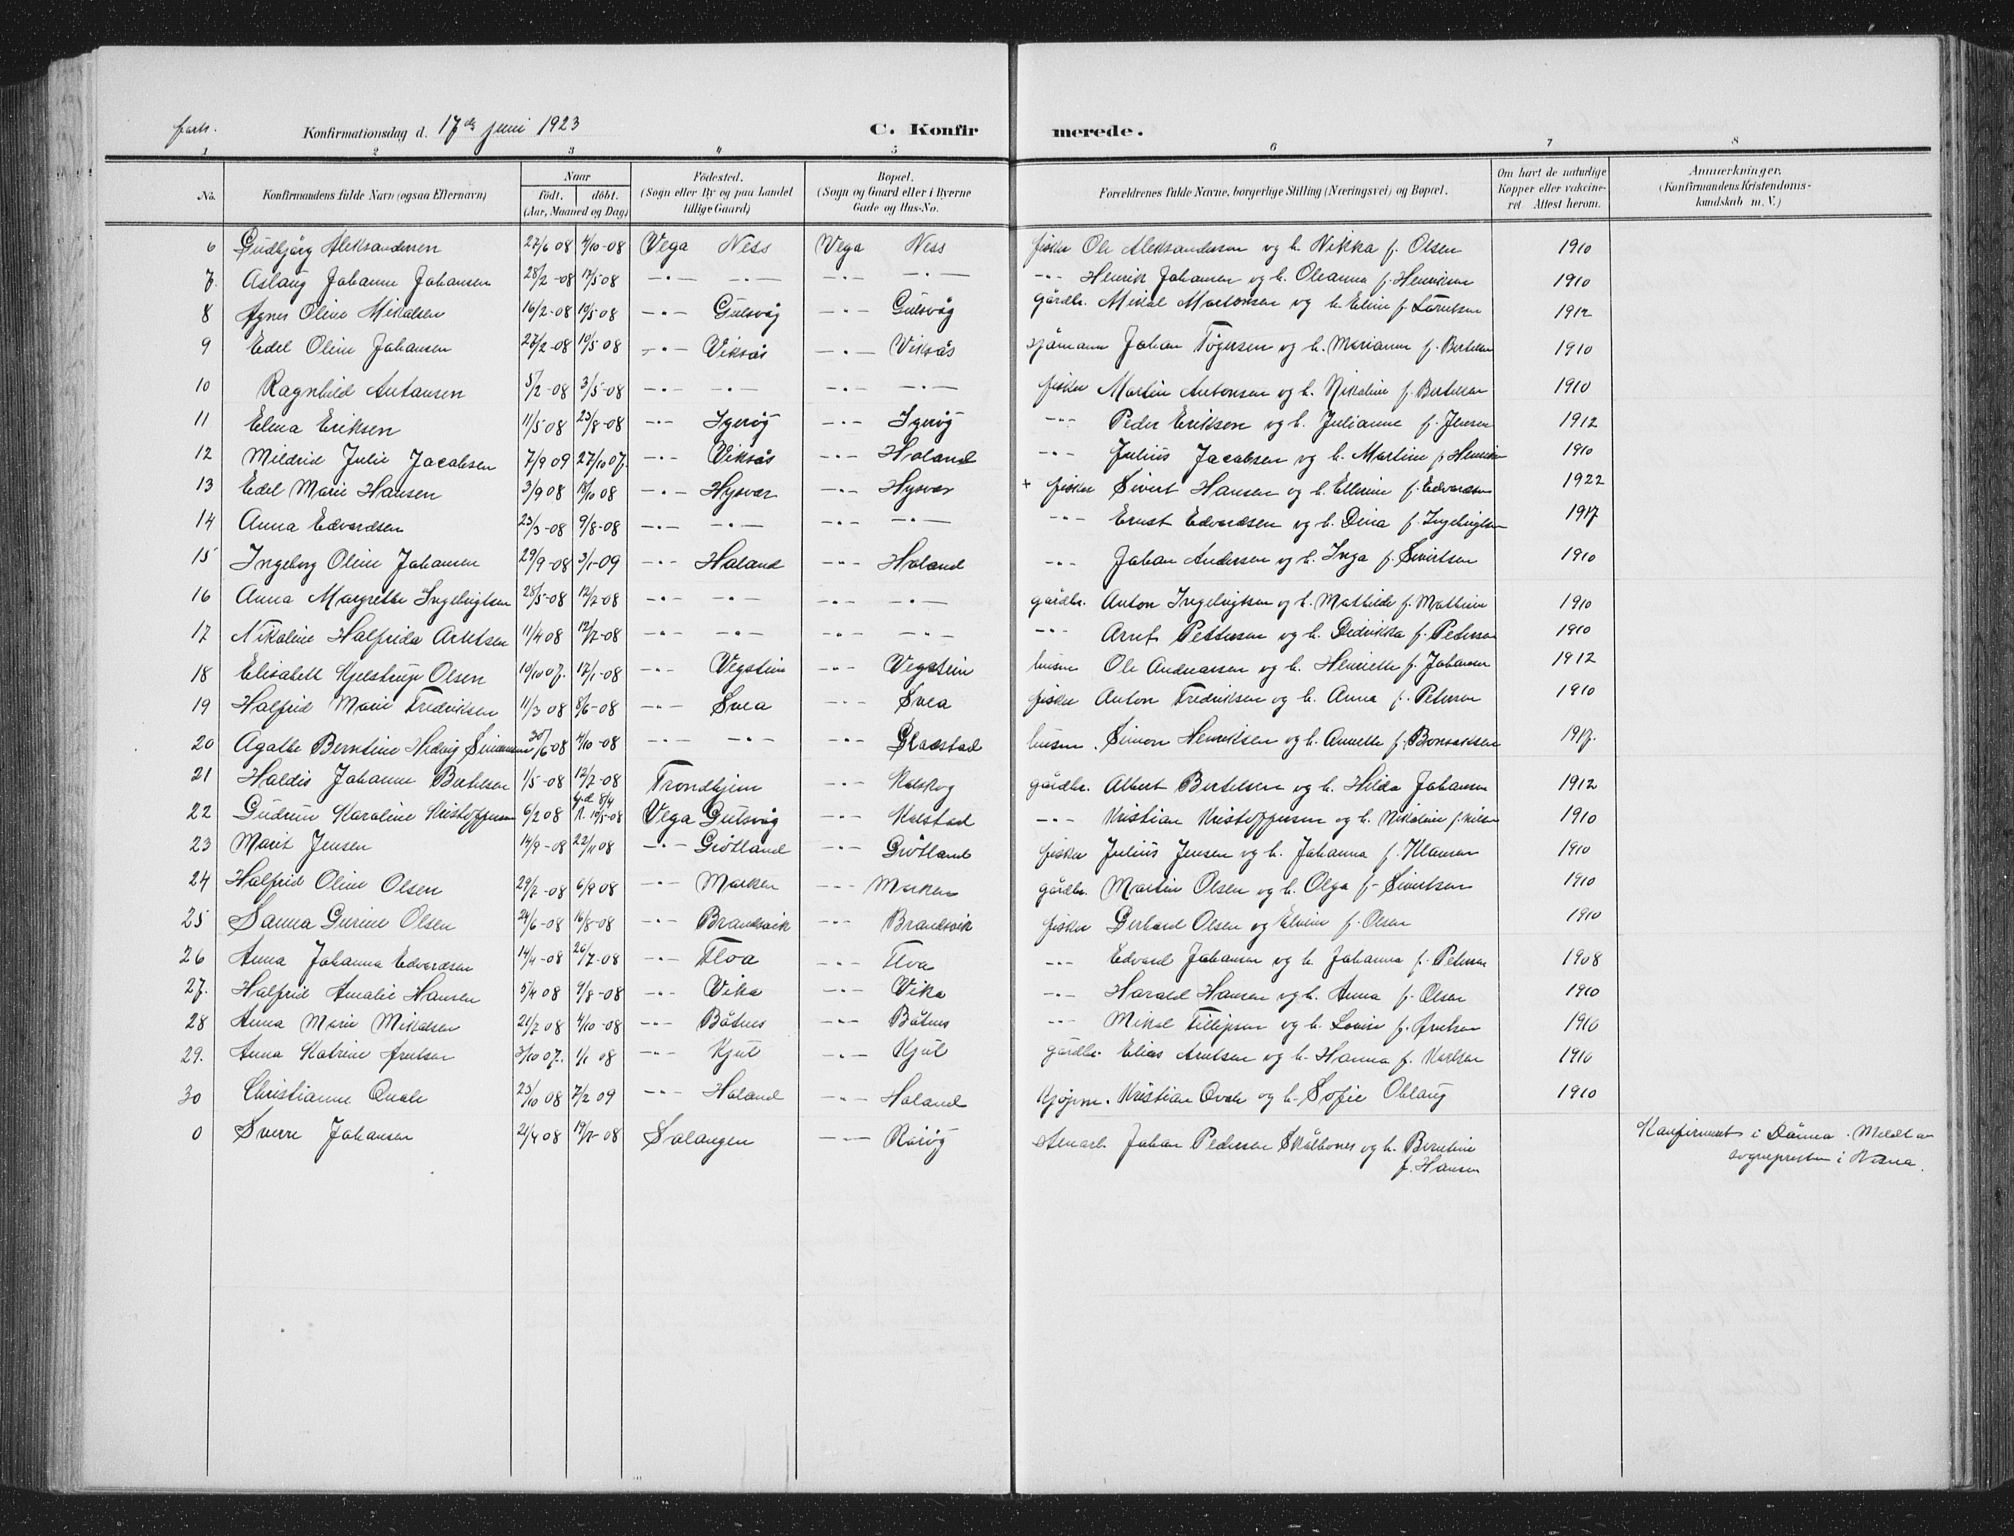 forts. Konfirmationsdag d. 17de juni 1923 C. Konfirmerede.
1 2 3 4 5 6 7 8
No. Konfirmandens fulde Navn (ogsaa Efternavn) Naar født. døbt. (Aar, Maaned og Dag) Fødested. (Sogn eller By og paa Landet tillige Gaard) Bopæl. (Sogn og Gaard eller i Byerne Gade og Hus-No. Forældrenes fulde Navne, borgerlige Stilling (Næringsvei) og Bopæl. Om havt de naturlige Kopper eller vaccineret. Attest herom. Anmærkninger. (Konfirmandens Kristendomskundskab m. V.)
6 Gudbjørg Aleksandersen 27/6 08 4/10-08 Vega Ness Vega Ness fisker Ole Aleksandersen og h. Nikka f. Olsen 1910
7. Aslaug Johanne Johansen 28/2-08 17/5 08 -"- -"- -"- -"- -"- Henrik Johansen og h. Oleanna f. Henriksen 1910
8 Agnes Oline Mikalsen 16/2-08 10/5 08 -"- Gulsvåg -"- Gulsvåg gårdbr. Mikal Martensen og h. Eline f. 1912
9 Edel Oline Johansen 27/2-08 10/5 08 -"- Viksås -"- Viksås sjømann Johan Tøgersen og h. Marianne f. Bertelsen 1910
10 Ragnhild Antonsen 5/2-08 3/5-08 -"- -"- -"- -"- fisker Martin Antonsen og h. Nikoline f. Bertelsen 1910
11 Elma Eriksen 11/5-08 23/8-08 -"- Igerøy -"- Igerøy -"- Peder Eriksen og h. Julianne f. Jensen 1912
12 Mildrid Julie Jacobsen 7/9 09 27/10 07. -"- Viksås -"- Holand -"- Julius Jacobsen og h. Martine f. Henriksen 1910
13 Edel Marie Hansen 3/9 08 18/10 08 -"- Hysvær -"- Hysvær + fisker Sivert Hansen og h. Ellerine f. Edvardsen 1922
14 Anna Edvardsen 23/3-08 9/8-08 -"- -"- -"- -"- -"- Ernst Edvardsen og h. Dina f. Ingebrigtsen 1917
15 Ingeborg Oline Johansen 29/9-08 3/1-09 -"- Holand -"- Holand -"- Johan Andersen og h. Inga f. Sivertsen 1910
16 Anna Margrethe Ingebrigtsen 28/5-08 12/2-08 -"- -"- -"- -"- gårdbr. Anton Ingebrigtsen og h. Mathilde f. Mathisen 1910
17 Nikoline Halfrida Arntsen 11/4 08 12/7-08 -"- -"- -"- -"- -"- Arnt Pettersen og h. Dedrikka f. Pedersen 1910
18 Elisabeth Kjelstrup Olsen 19/10 07. 12/1-08 -"- Vegstein -"- Vegstein husm Ole Andreassen og h. Henriette f. Johansen 1912
19 Halfrid Marie Fredriksen 11/3 08 8/6-08 -"- Svea -"- Svea fisker Anton Fredriksen og h. Anna f. Petersen 1910
20 Agathe Berntine Hedvig Simonsen 30/6-08 4/10-08 -"- -"- Gladstad husm. Simon Henriksen og h. Annette f. Bonsaksen 1917.
21 Haldis Johanne Bertelsen 1/5-08 12/7-08 Trondhjem -"- Kolskog gårdbr. Albert Bertelsen og h. Hilda Johansen 1912
22 Gudrun Karoline Kristoffersen 6/2 08 hj.d. 8/4 K. 10/5-08 Vega Gulsvåg -"- Kolstad -"- Kristian Kristoffersen og h. Nikoline f. Nilsen 1910
23 Marit Jensen 14/9-08 22/11 08 -"- Grøtland -"- Grøtland fisker Julius Jensen og h. Johanna f. Klausen 1910
24 Halfrid Oline Olsen 29/7-08 6/9 08 -"- Marken -"- Marken gårdbr. Martin Olsen og h. Olga f. Sivertsen 1910
25 Sanna Gurine Olsen 24/6-08 16/8-08 -"- Brandsvik -"- Brandsvik fisker Gerhard Olsen og Elvine f. Olsen 1910
26 Anna Johanna Edvardsen 14/4-08 26/7-08 -"- Floa -"- Floa -"- Edvard Johansen og h. Johanna f. Petersen 1908
27. Halfrid Amalie Hansen 5/4 08 9/8-08 -"- Vika -"- Vika -"- Harald Hansen og h. Anna f. Olsen 1910
28 Anna Marie Mikalsen 21/7 08 4/10-08 -"- Båtnes -"- Båtnes -"- Mikal Fillipsen og h. Lovise f. Arntsen 1910
29. Anna Katrine Arntsen 3/10 07. 1/1 08 -"- Kjul -"- Kjul gårdbr. Elias Arntsen og h. Hanna f. Karlsen 1910
30 Christianne Qvale 23/10 08 7/2 09 -"- Holand -"- Holand Kjøpm. Kristian Qvale og h. Sofie Oklaug 1910
0 Sverre Johansen 21/4 08 19/7-08 Salangen -"- Rørøy Stenarb. Johan Pedersen Skålbones og h. Berntine Konfirmert i Dønna. Meldt av
f. Hansen sognepresten i Nesna.